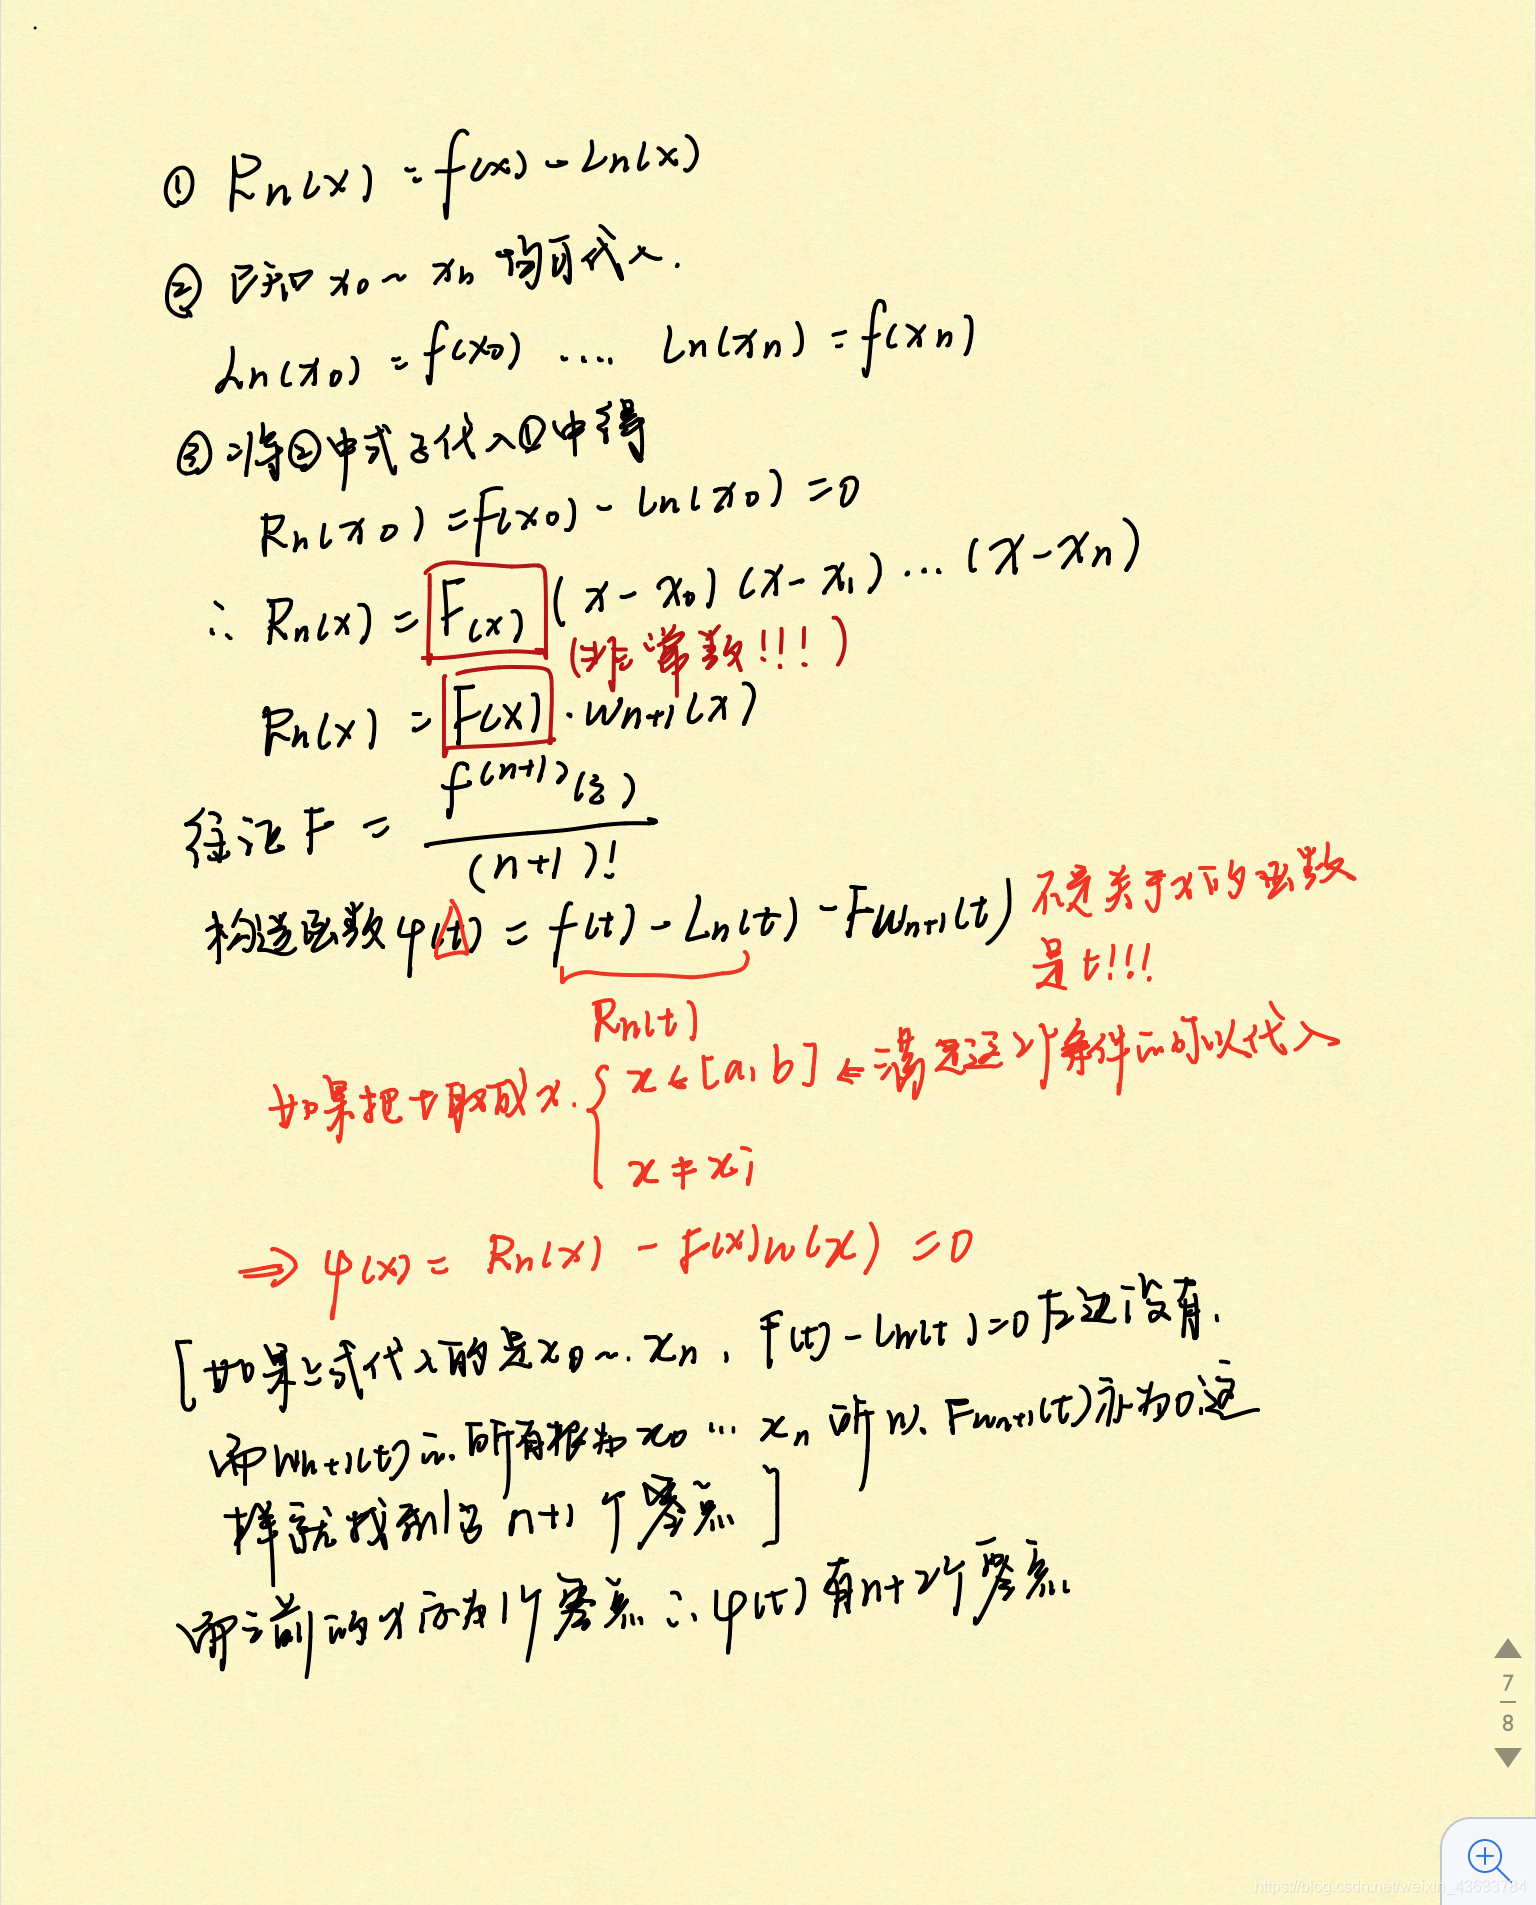 ① Rn(x) = f(x) - Ln(x)
② 已知 x0 ~ xn 均可代入.
Ln(x0) = f(x0) .... Ln(xn) = f(xn)
③ 将②中式子代入①中得
Rn(x0) = f(x0) - Ln(x0) = 0
∴ Rn(x) = F(x) (x - x0)(x - x1) ... (x - xn)
(非常数!!!)
Rn(x) = F(x) · Wn+1(x)
待证 F = f^(n+1)(ξ) / (n+1)!
构造函数 φ(t) = f(t) - Ln(t) - FWn+1(t) 不是关于x的函数
是t!!!
Rn(t)
如果把t取成x. { x∈[a,b] ← 满足这2个条件的可以代入
x ≠ xi
⇒ φ(x) = Rn(x) - F(x)W(x) = 0
[如果上式代入的是x0~xn, f(t) - Ln(t) = 0 左边没有.
而Wn+1(t)的所有根为x0 ... xn 所以 FWn+1(t)亦为0这
样就找到了n+1个零点]
而之前的x亦为1个零点 ∴ φ(t)有n+2个零点
7
8
https://blog.csdn.net/weixin_43633784